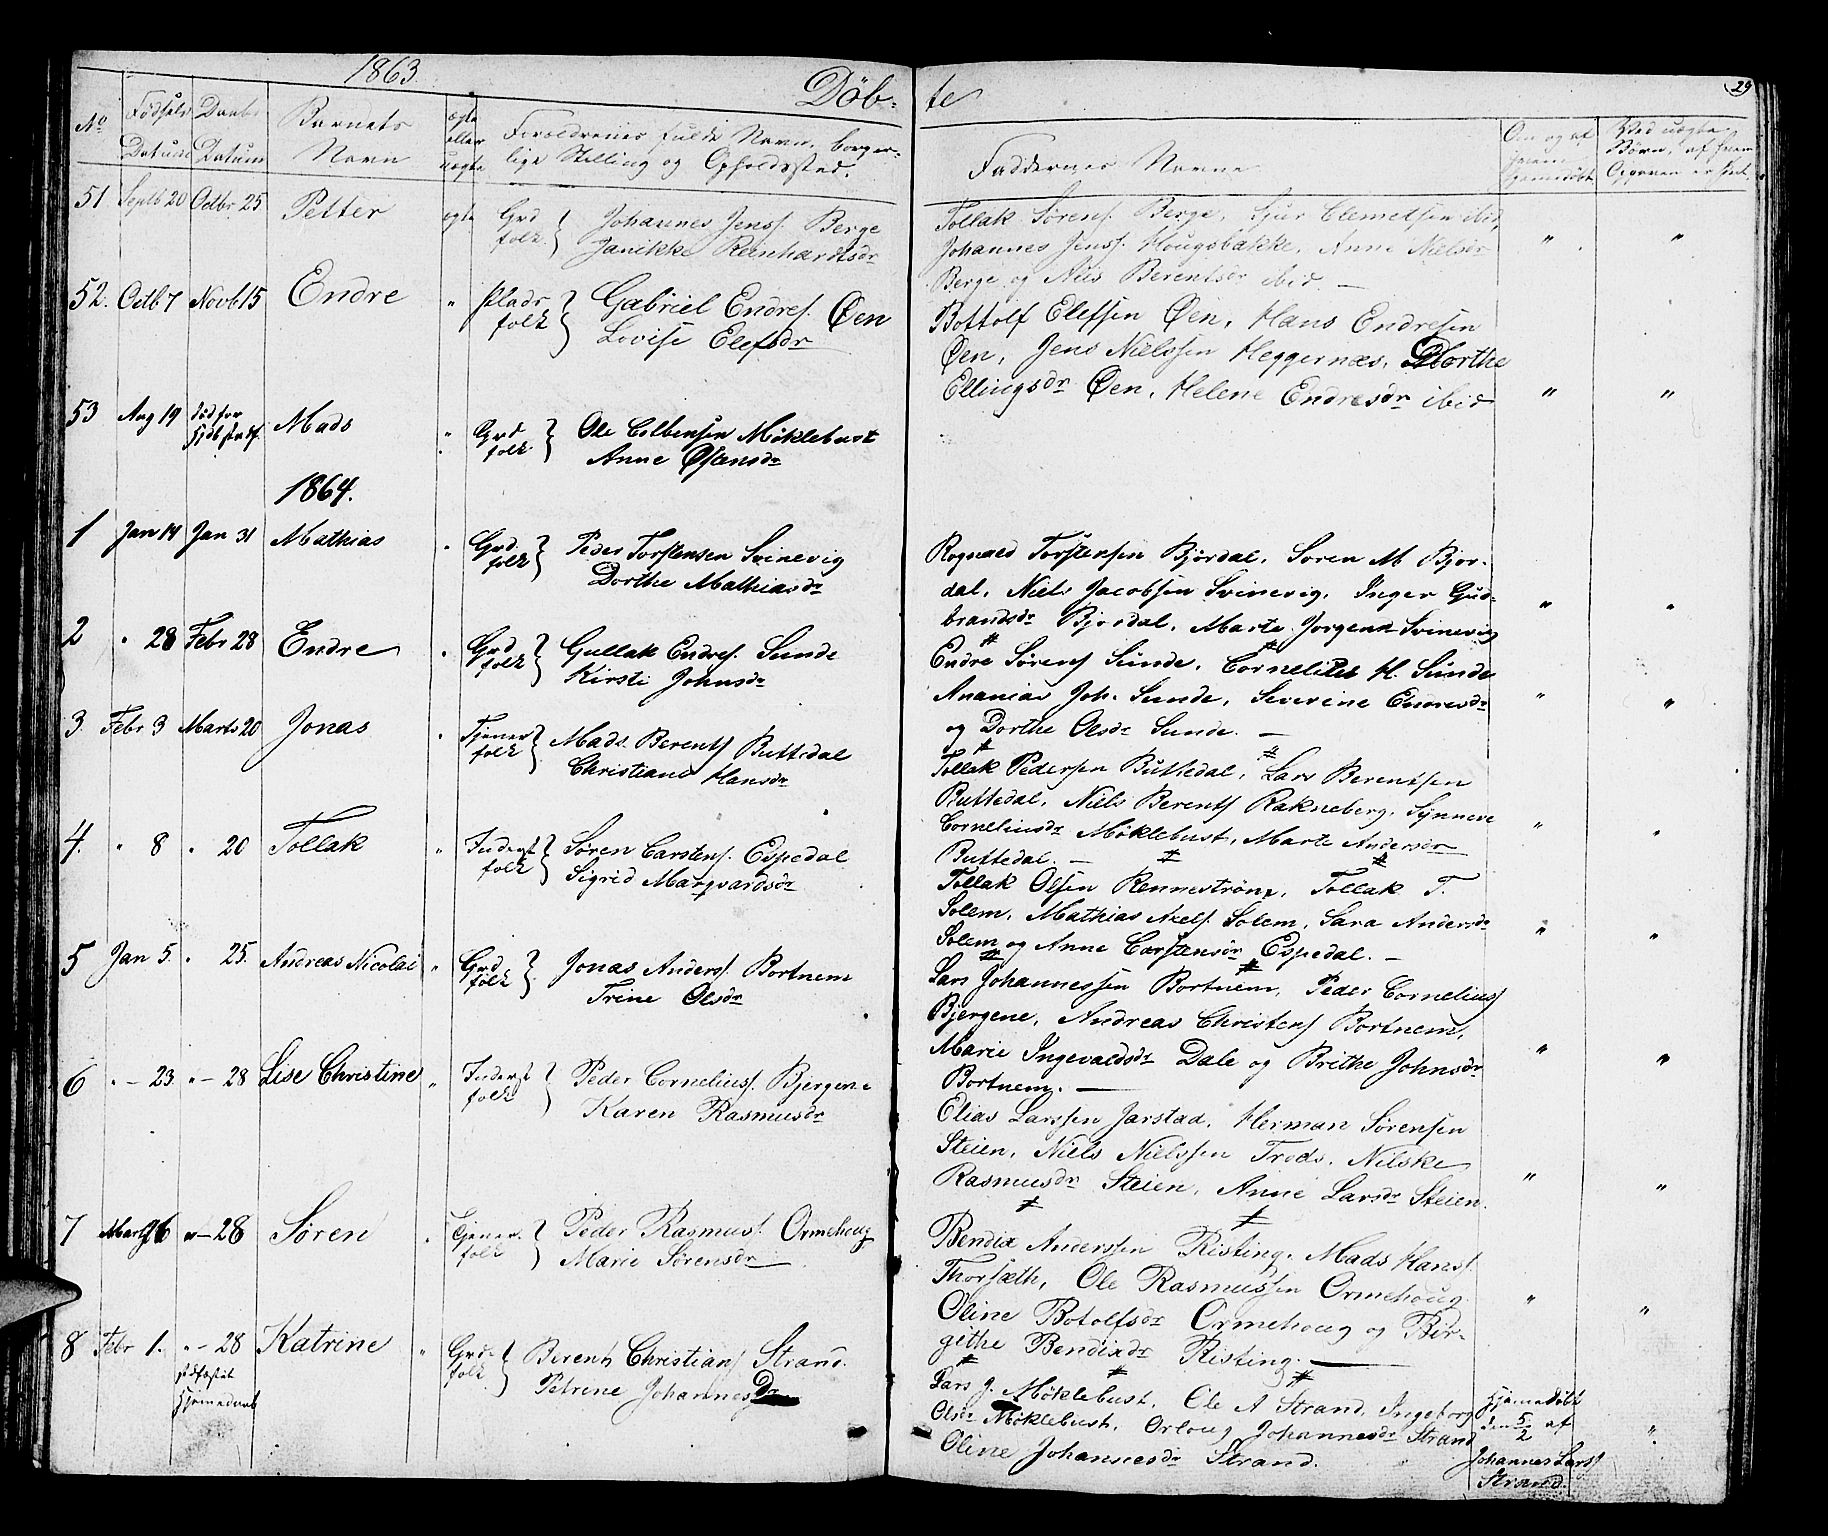 1863
Døb- te
29
No
Fødsels Datum
Daabs Datum
Barnets Navn
ægte eller uægte
Forældrenes fulde Navn, borger-
lige Stilling og Opholdssted.
Faddernes Navne
Om og af hvem hjemmedøbt
Ved uægte Børn, af hvem Opgaven er skeet
51 Septb 20 Octbr 25 Petter egte Grd folk } Johannes Jenss. Berge
Janikke Reinhardtsdr
Tollak Sørens. Berge, Sjur Clemetsen ibid,
Johannes Jenss. Hougsbakke, Anne Nielsdr
Berge og Nils Berentsdr ibid. —
" "
52. Octb. 7 Novb 15 Endre " Plads folk } Gabriel Endres. Øen
Lovise Elefsdr
Bottolf Elefsen Øen, Hans Endresen
Øen, Jens Nielssen Heggernæs, Dorthe
Ellingsdr Øen, Helene Endresdr ibid
" "
53 Aug 19 død før Hjdb. stadf. Mads " Grd folk } Ole Colbensen Møklebust
Anne Østensdr
1864.
1 Jan 14 Jan 31 Mathias " Grd folk } Peder Torstensen Svinevig
Dorthe Mathiasdr
Rognald Torstensen Bjordal, Soren M Bjor-
dal, Niels Jacobsen Svinevig, Inger Gud-
brandsdr Bjordal, Marte Jorgend Svinevig
" "
2 " 28 Febr 28 Endre " Grd folk } Gullak Endres. Sunde
Kirsti Johnsdr
Endre Sørens Sunde, Cornelius H. Sunde
Ananias Joh. Sunde, Severine Endresdr
og Dorthe Olsdr Sunde. —
" "
3. Febr 3 Marts 20 Jonas " Tjener folk } Mads Berents Buttedal
Christiane Hansdr
Tollak Pedersen Buttedal, Lars Berentsen
Buttedal, Niels Berents Rakneberg, Synneve
Corneliusdr Møklebust, Marte Andersdr
Buttedal. —
" "
4. " 8 " 20 Tollak " Inderst folk } Søren Carstens. Espedal
Sigrid Marqvardsdr
Tollak Olsen Rennestrøm, Tollak T.
Solem, Mathias Axels. Solem, Sara Andersdr
Solem og Anne Carstensdr Espedal. —
" "
5 Jan 5. " 25. Andreas Nicolai " Grd folk } Jonas Anders. Bortnem
Trine Olsdr
Lars Johannessen Bortnem, Peder Cornelius
Bjergene, Andreas Christens Bortnem,
Marie Ingevaldsdr Dale og Brithe Johnsdr
Bortnem. —
" "
6 " — 23 " — 28 Lise Christine " Inderst folk } Peder Cornelius. Bjergene
Karen Rasmusdr
Elias Larssen Jarstad, Herman Sørensen
Steien, Niels Nielssen Trods, Nilske
Rasmusdr Steien, Anne Larsdr Steien.
" "
7 Marts 16 " — 28 Søren " Tjener folk } Peder Rasmus. Ormehoug
Marie Sørensdr
Bendix Anderssen Risting, Mads Hans.
Thorsæth, Ole Rasmussen Ormehoug.
Oline Botolfsdr Ormehoug og Bir-
gethe Bendixdr Risting. —
" "
8 Febr 1. " — 28 stadfæstet Hjemedaab Katrine " Grd folk } Berent Christians Strand.
Petrine Johannesdr
Lars J. Møklebust, Ole A Strand, Ingeborg
Olsdr Møklebust, Orloug Johannesdr Strand
Oline Johannesdr Strand.
Hjemedøbt
den 5/2 af
Johannes Lars
Strand.
"